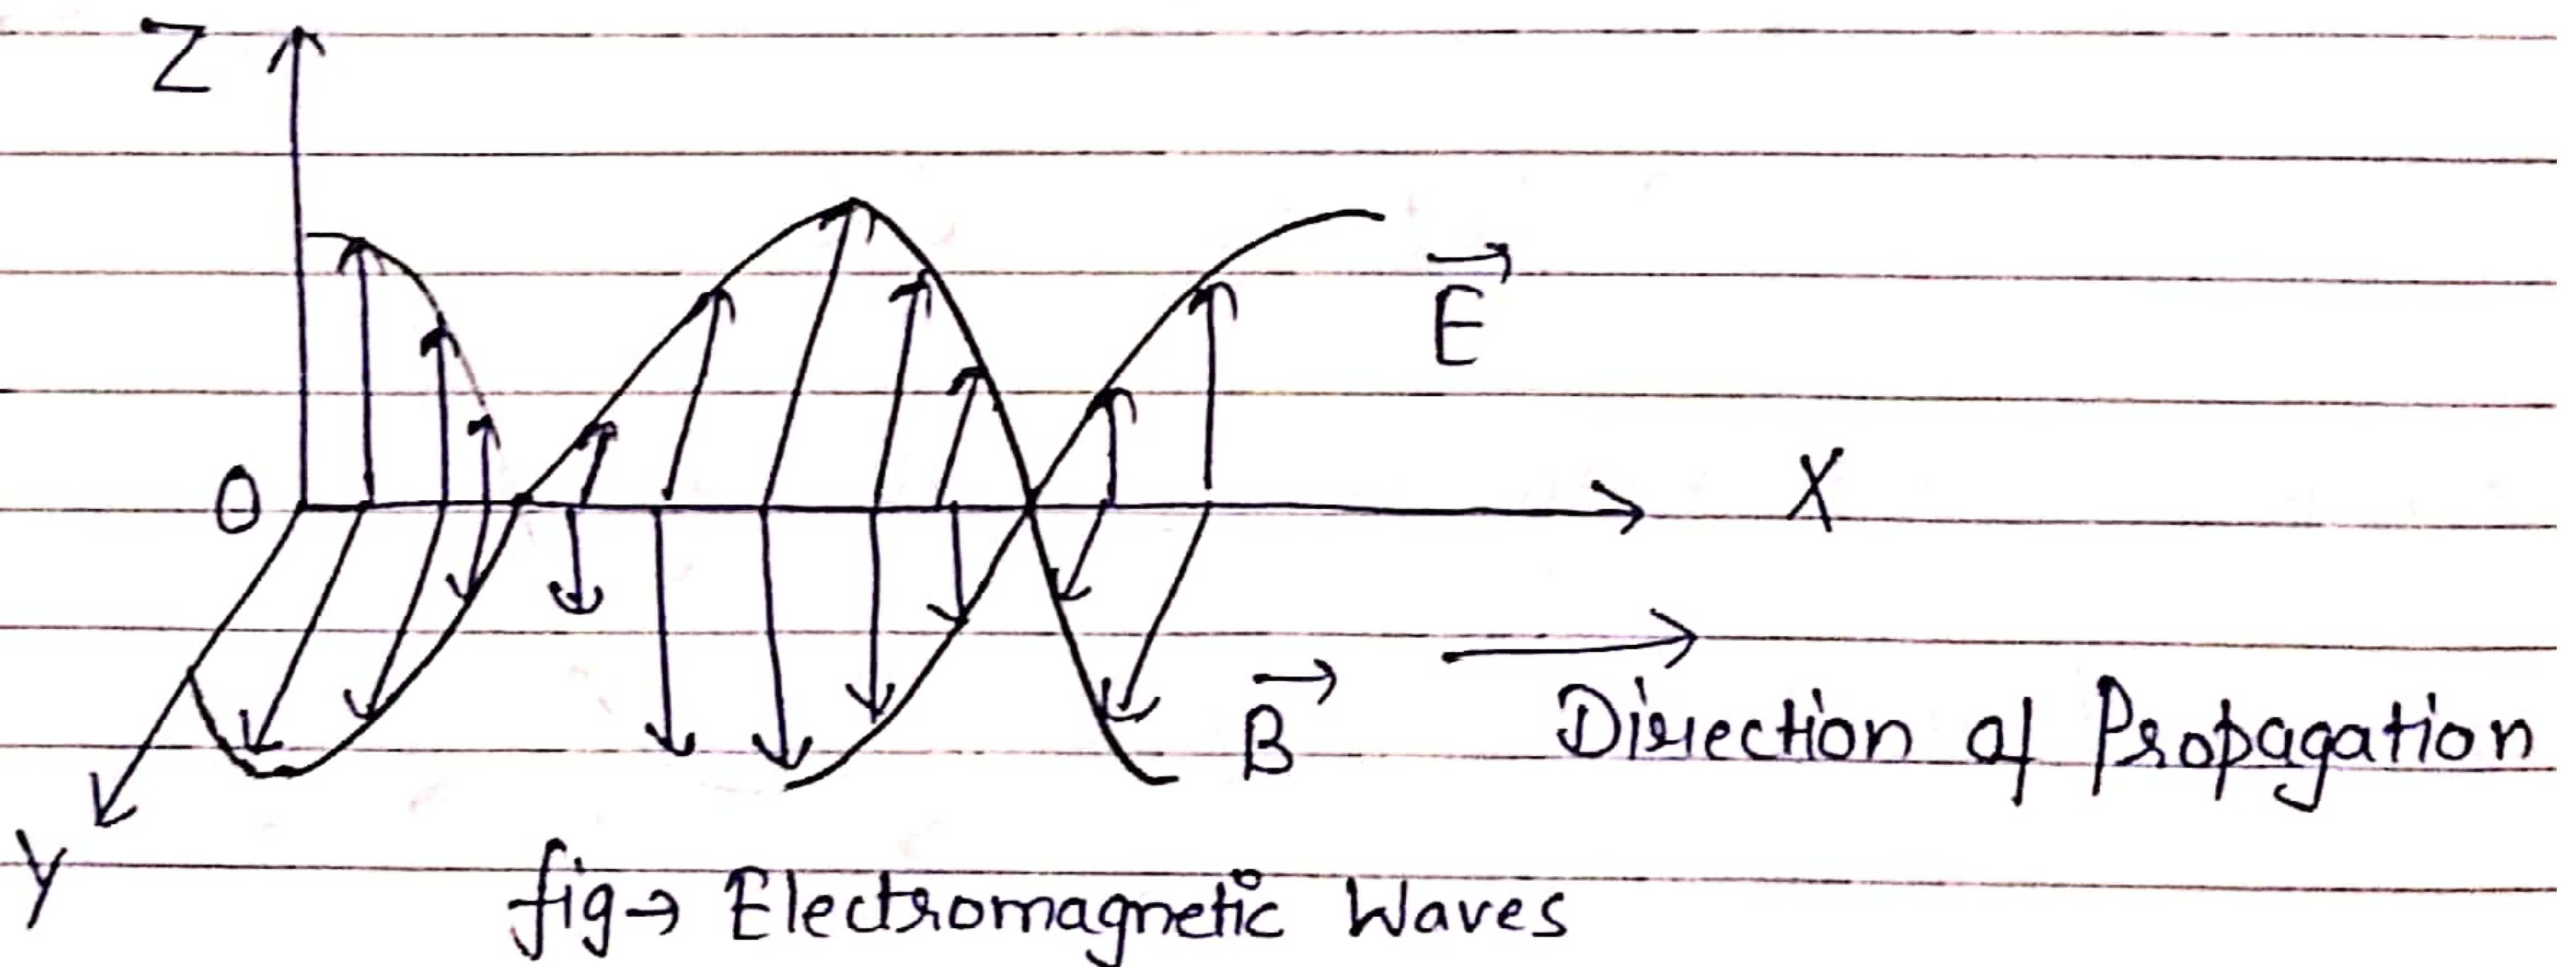 Z
E
O
X
B
Direction of Propagation
Y
fig → Electromagnetic Waves